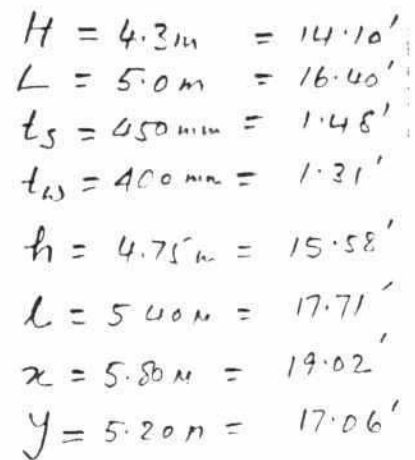 H = 4.3m = 14.10'
L = 5.0 m = 16.40'
ts = 450 mm = 1.48'
tw = 400 mm = 1.31'
h = 4.75 m = 15.58'
l = 5.40 m = 17.71'
x = 5.80 m = 19.02'
y = 5.20 m = 17.06'